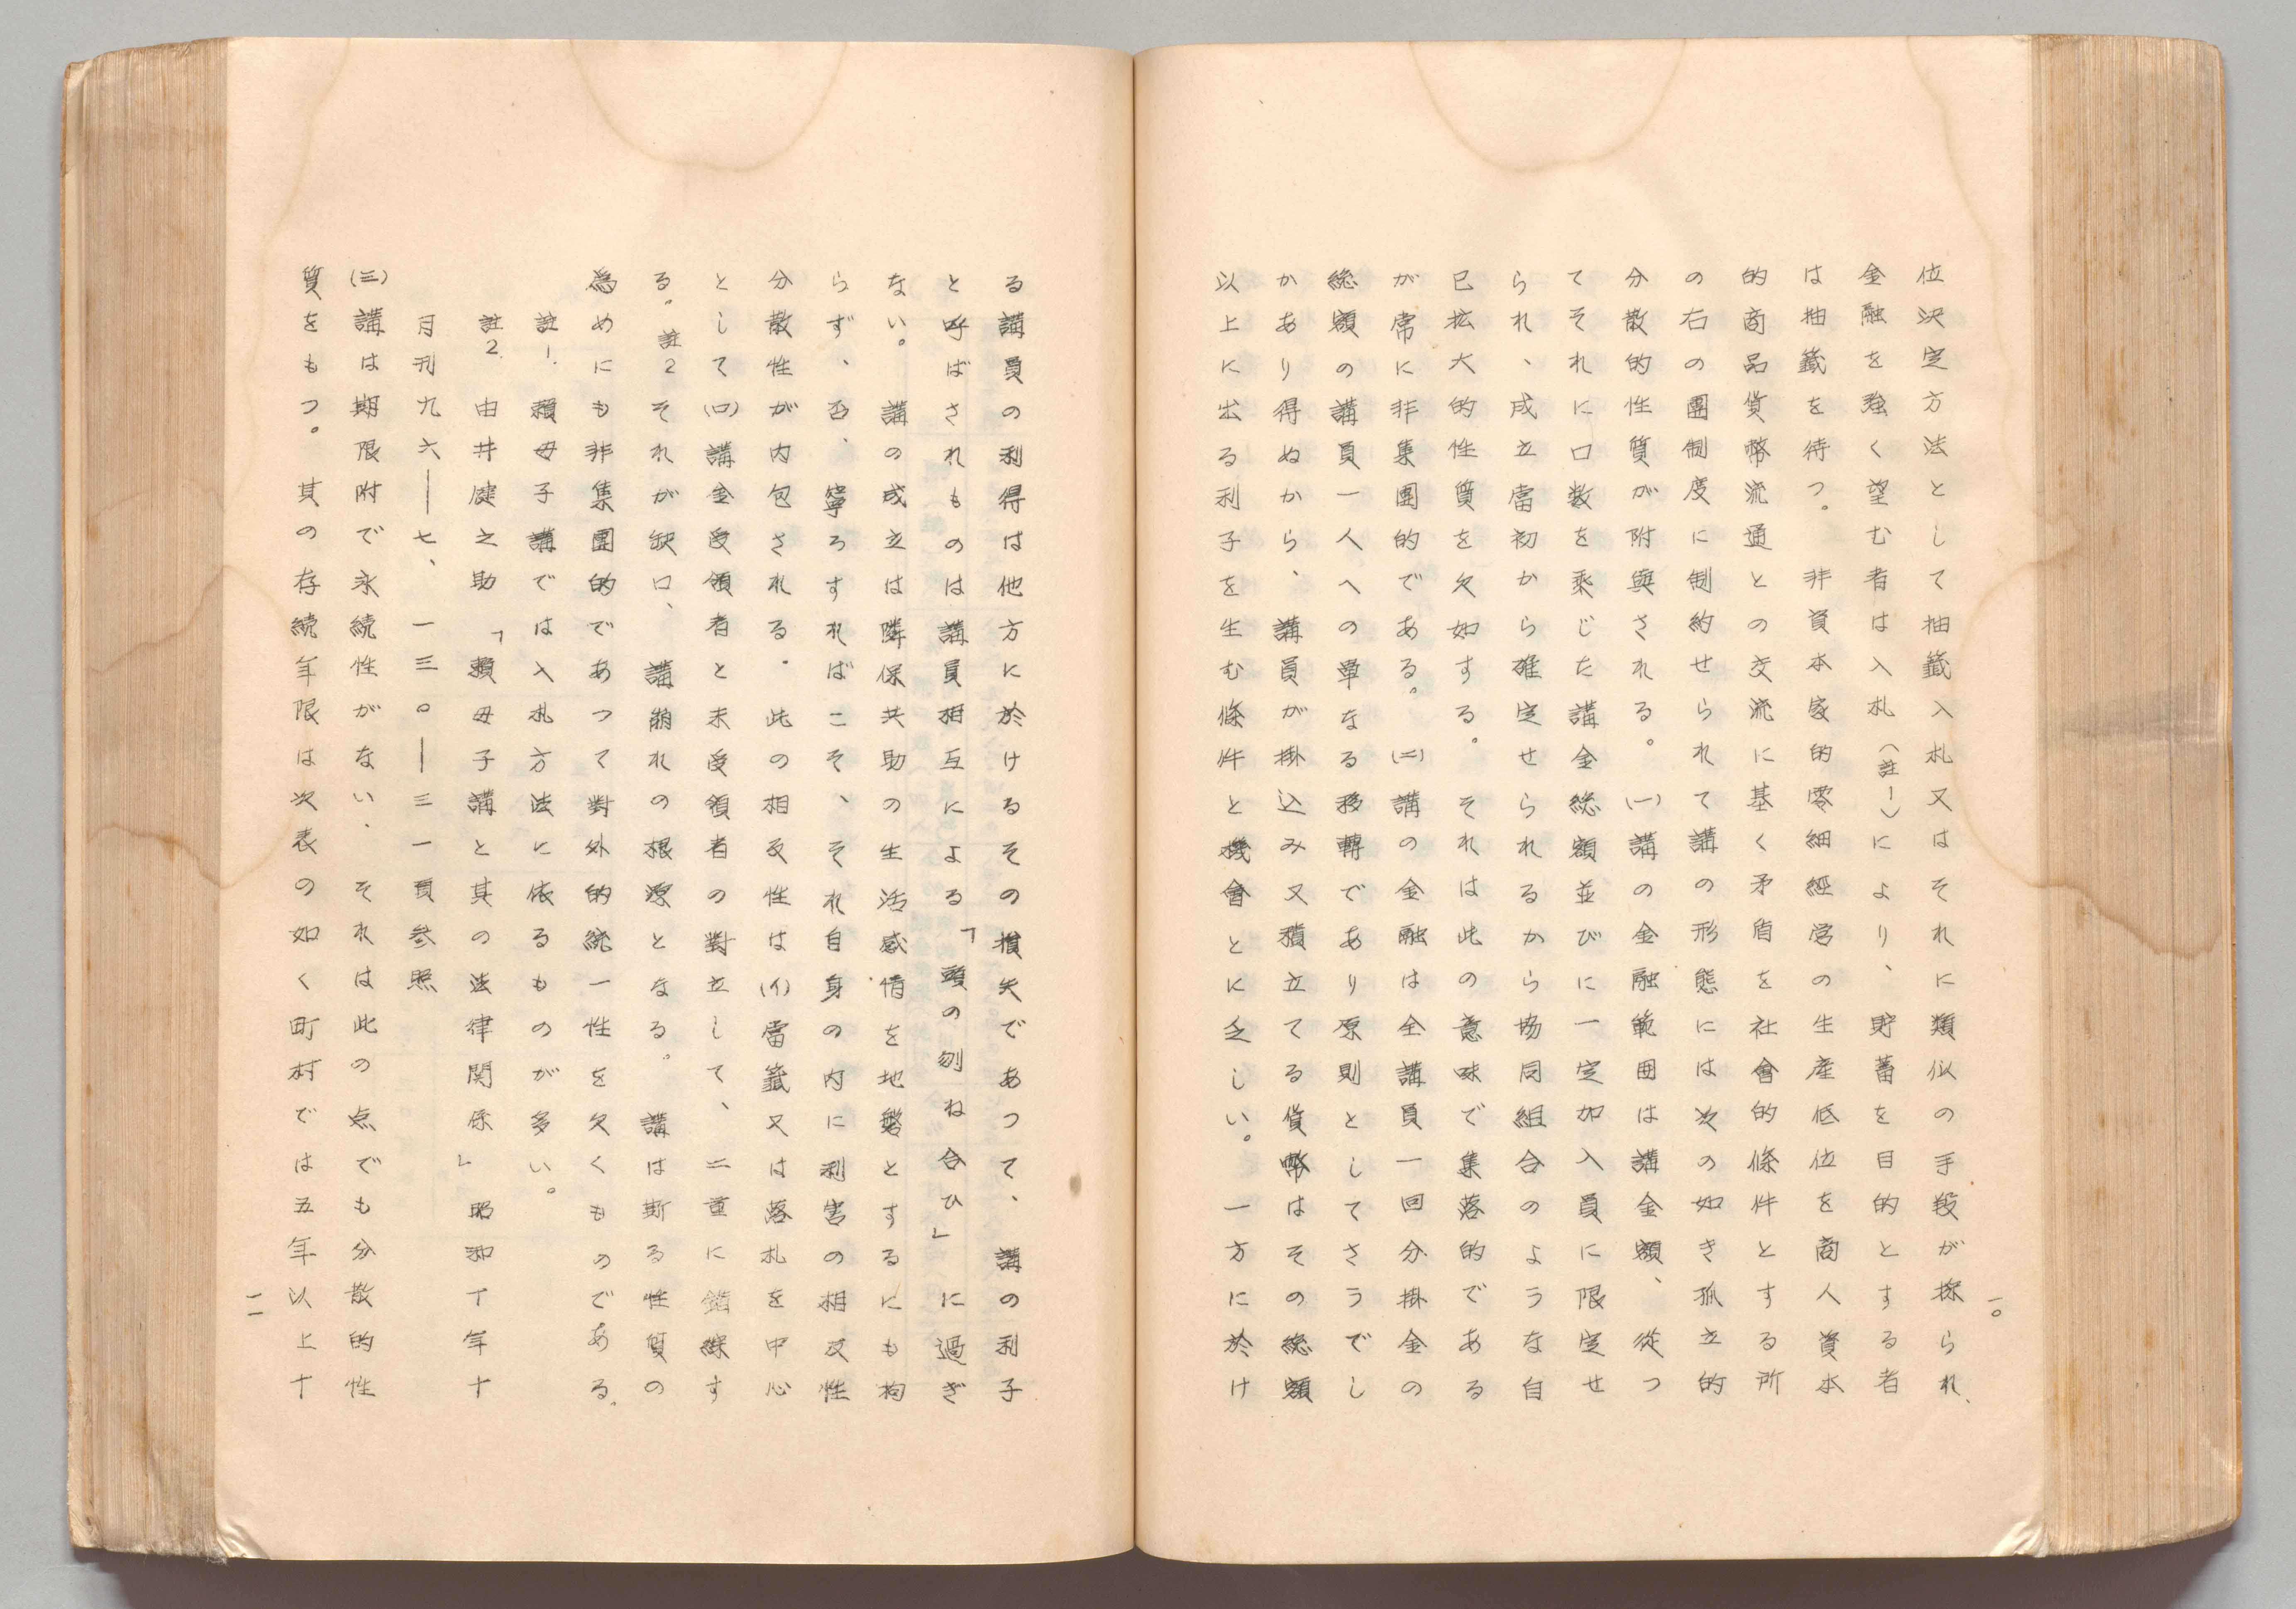 一〇
位決定方法として抽籤入札又はそれに類似の手段が採られ、
金融を強く望む者は入札(註1)により、貯蓄を目的とする者
は抽籤を待つ。非資本家的零細經営の生産低位を商人資本
的商品貨幣流通との交流に基く矛盾を社會的條件とする所
の右の團制度に制約せられて講の形態には次の如き孤立的
分散的性質が附與される。(一)講の金融範囲は講金額、従つ
てそれに口数を乘じた講金総額並びに一定加入員に限定せ
られ、成立當初から確定せられるから協同組合のような自
已拡大的性質を欠如する。それは此の意味で集落的である
が常に非集團的である。(二)講の金融は全講員一回分掛金の
総額の講員一人への單なる移轉であり原則としてさうでし
かあり得ぬから、講員が掛込み又積立てる貨幣はその総額
以上に出る利子を生む條件と機會とに乏しい。一方に於け
る講員の利得は他方に於けるその損失であつて、講の利子
と呼ばされものは講員相互による「頭の刎ね合ひ」に過ぎ
ない。講の成立は隣保共助の生活感情を地盤とするにも拘
らず、否、寧ろすればこそ、それ自身の内に利害の相反性
分散性が内包される。此の相反性は(イ)當籤又は落札を中心
として(ロ)講金受領者と未受領者の對立して、二重に錯綜す
る。註2それが缺口、講崩れの根源となる。講は斯る性質の
為めにも非集團的であつて對外的統一性を欠くものである。
註1.頼母子講では入札方法に依るものが多い。
註2.由井健之助「頼母子講と其の法律関係」昭和丁年十
月刊九六——七、一三〇——三一頁参照
(三)講は期限附で永続性がない、それは此の点でも分散的性
質をもつ。其の存続年限は次表の如く町村では五年以上十
一一